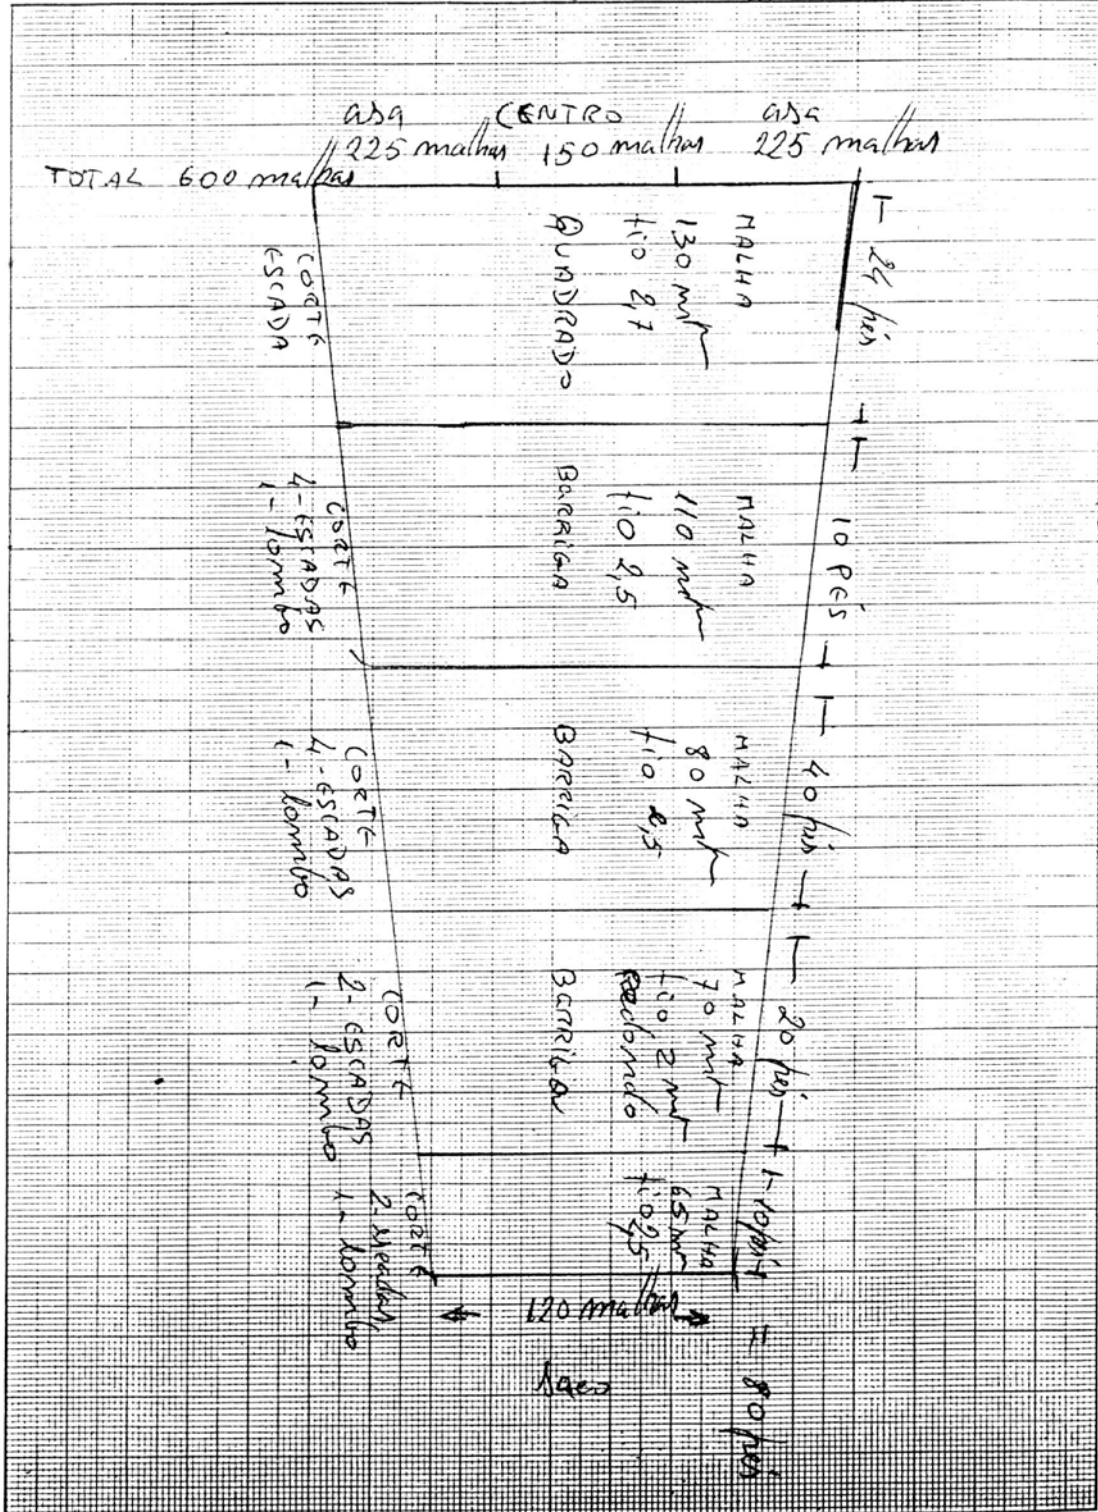 asa CENTRO asa
225 malhas 150 malhas 225 malhas
TOTAL 600 malhas
24 pés
MALHA
130 mm
fio 2,7
QUADRADO
CORTE
ESCADA
10 PÉS
MALHA
110 mm
fio 2,5
BARRIGA
CORTE
4-ESCADAS
1- lombo
40 pés
MALHA
80 mm
fio 2,5
BARRIGA
CORTE
4-ESCADAS
1- lombo
20 pés
MALHA
70 mm
fio 2 mm
Redondo
BARRIGA
CORTE
2-ESCADAS
1- lombo
10 pés
MALHA
65 mm
fio 2,5
CORTE
1- lombo
120 malhas
= 80 pés
Saco